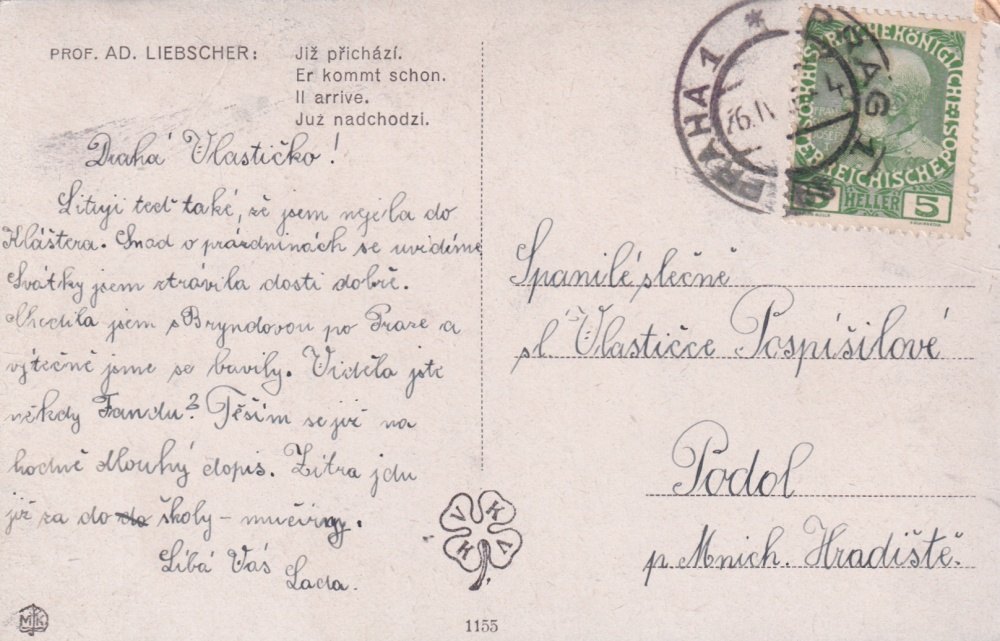 PROF. AD. LIEBSCHER: Již přichází.
Er kommt schon.
Il arrive.
Już nadchodzi.
Drahá Vlastičko!
Lituji teď také, že jsem nejela do
Kláštera. Snad o prázdninách se uvidíme
Svátky jsem ztrávila dosti dobře.
Chodila jsem s Bryndovou po Praze a
výtečně jsme se bavily. Viděla jste
někdy Fandu? Těším se již na
hodně dlouhý dopis. Zítra jdu
již za do do školy - mučírny.
Líbá Vás
Lada.
Spanilé slečně
sl. Vlastičce Pospíšilové
Podol
p. Mnich. Hradiště.
PRAHA 1 * PRAG 1
KAISERLICHE KÖNIGLICHE
ÖSTERREICHISCHE POST
HELLER 5
V K V K
MJK
1155